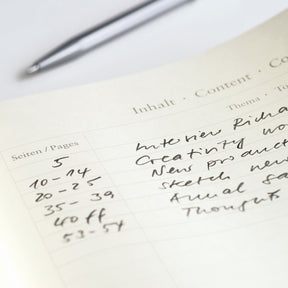 Inhalt · Content · Co
Seiten / Pages Thema · To
5 Interview Richa
10-14 Creativity wo
20-25 New product
35-39 sketch new
40ff Annual Sa
53-54 Thoughts